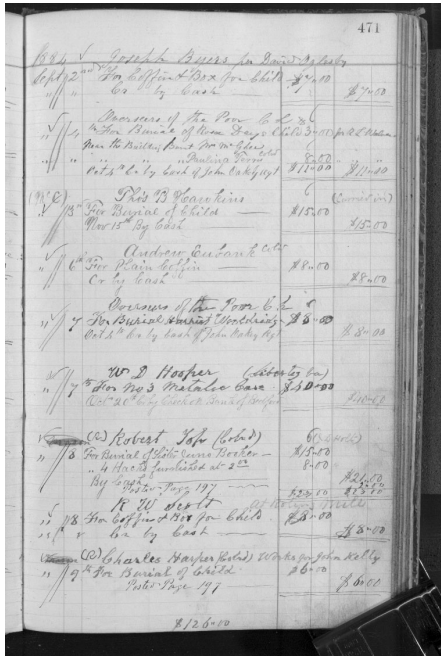 471
1884 Joseph Byers per David Oglesby
Sept 2nd For Coffin & Box for Child $7.00
" " Cr by Cash $7.00
Overseers of the Poor C.L. &
" 4th For Burial of Rosa Days Child 3.00
Near the Bridge, Burnt
" " " " Pauling Colᵈ 8.00
Oct 4th Cr by Cash of John Oakey Agt $11.00 $11.00
Thos B Hawkins
" 3rd For Burial of Child $15.00
Nov 15th By Cash $15.00
Andrew Eubank Colᵈ
" 6th For Plain Coffin $8.00
Cr by Cash $8.00
Overseers of the Poor C.L.
" 7 For Burial Harriet Wooldridge $8.00
Oct 4th Cr by Cash of John Oakey Agt $8.00
W. D. Hooper (Liberty Va)
" 7th For No 3 Metalic Case $40.00
20th Cr by Check Bank of Bedford $40.00
(C) Robert (Cold)
" 8 For Burial of June Booker $15.00
" 4 Hacks furnished at 2.00 8.00
By Cash $21.00
Poster Page 197
R. W. Scott At Mill
" 8 For Coffin & Box for Child $8.00
" " Cr by Cash $8.00
(C) Charles Harper (Cold) Works for John Kelly
" 9th For Burial of Child $6.00
Poster Page 197 $6.00
$126.00